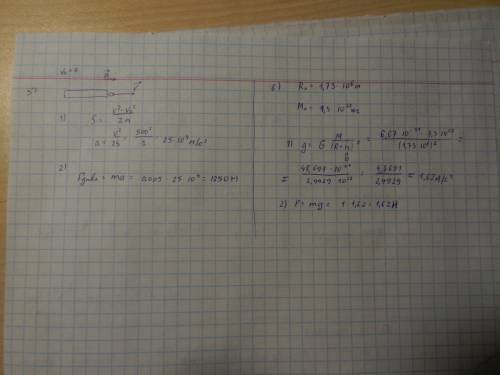 V₀ = 0
a
5)
1) S = (V² - V₀²) / 2a
a = V² / 2S = 500² / 2 = 25·10⁴ м/с²
2) = ma = 0,005 · 25·10⁴ = 1250 Н
6) R = 1,73 · 10⁶ м
M = 7,3 · 10²² кг
1) g = G M / (R+h)² = 6,67·10⁻¹¹ · 7,3·10²² / (1,73·10⁶)² =
= 48,691 · 10¹¹ / 2,9929 · 10¹² = 4,8691 / 2,9929 = 1,62 м/с²
2) F = mg = 1 · 1,62 = 1,62 Н